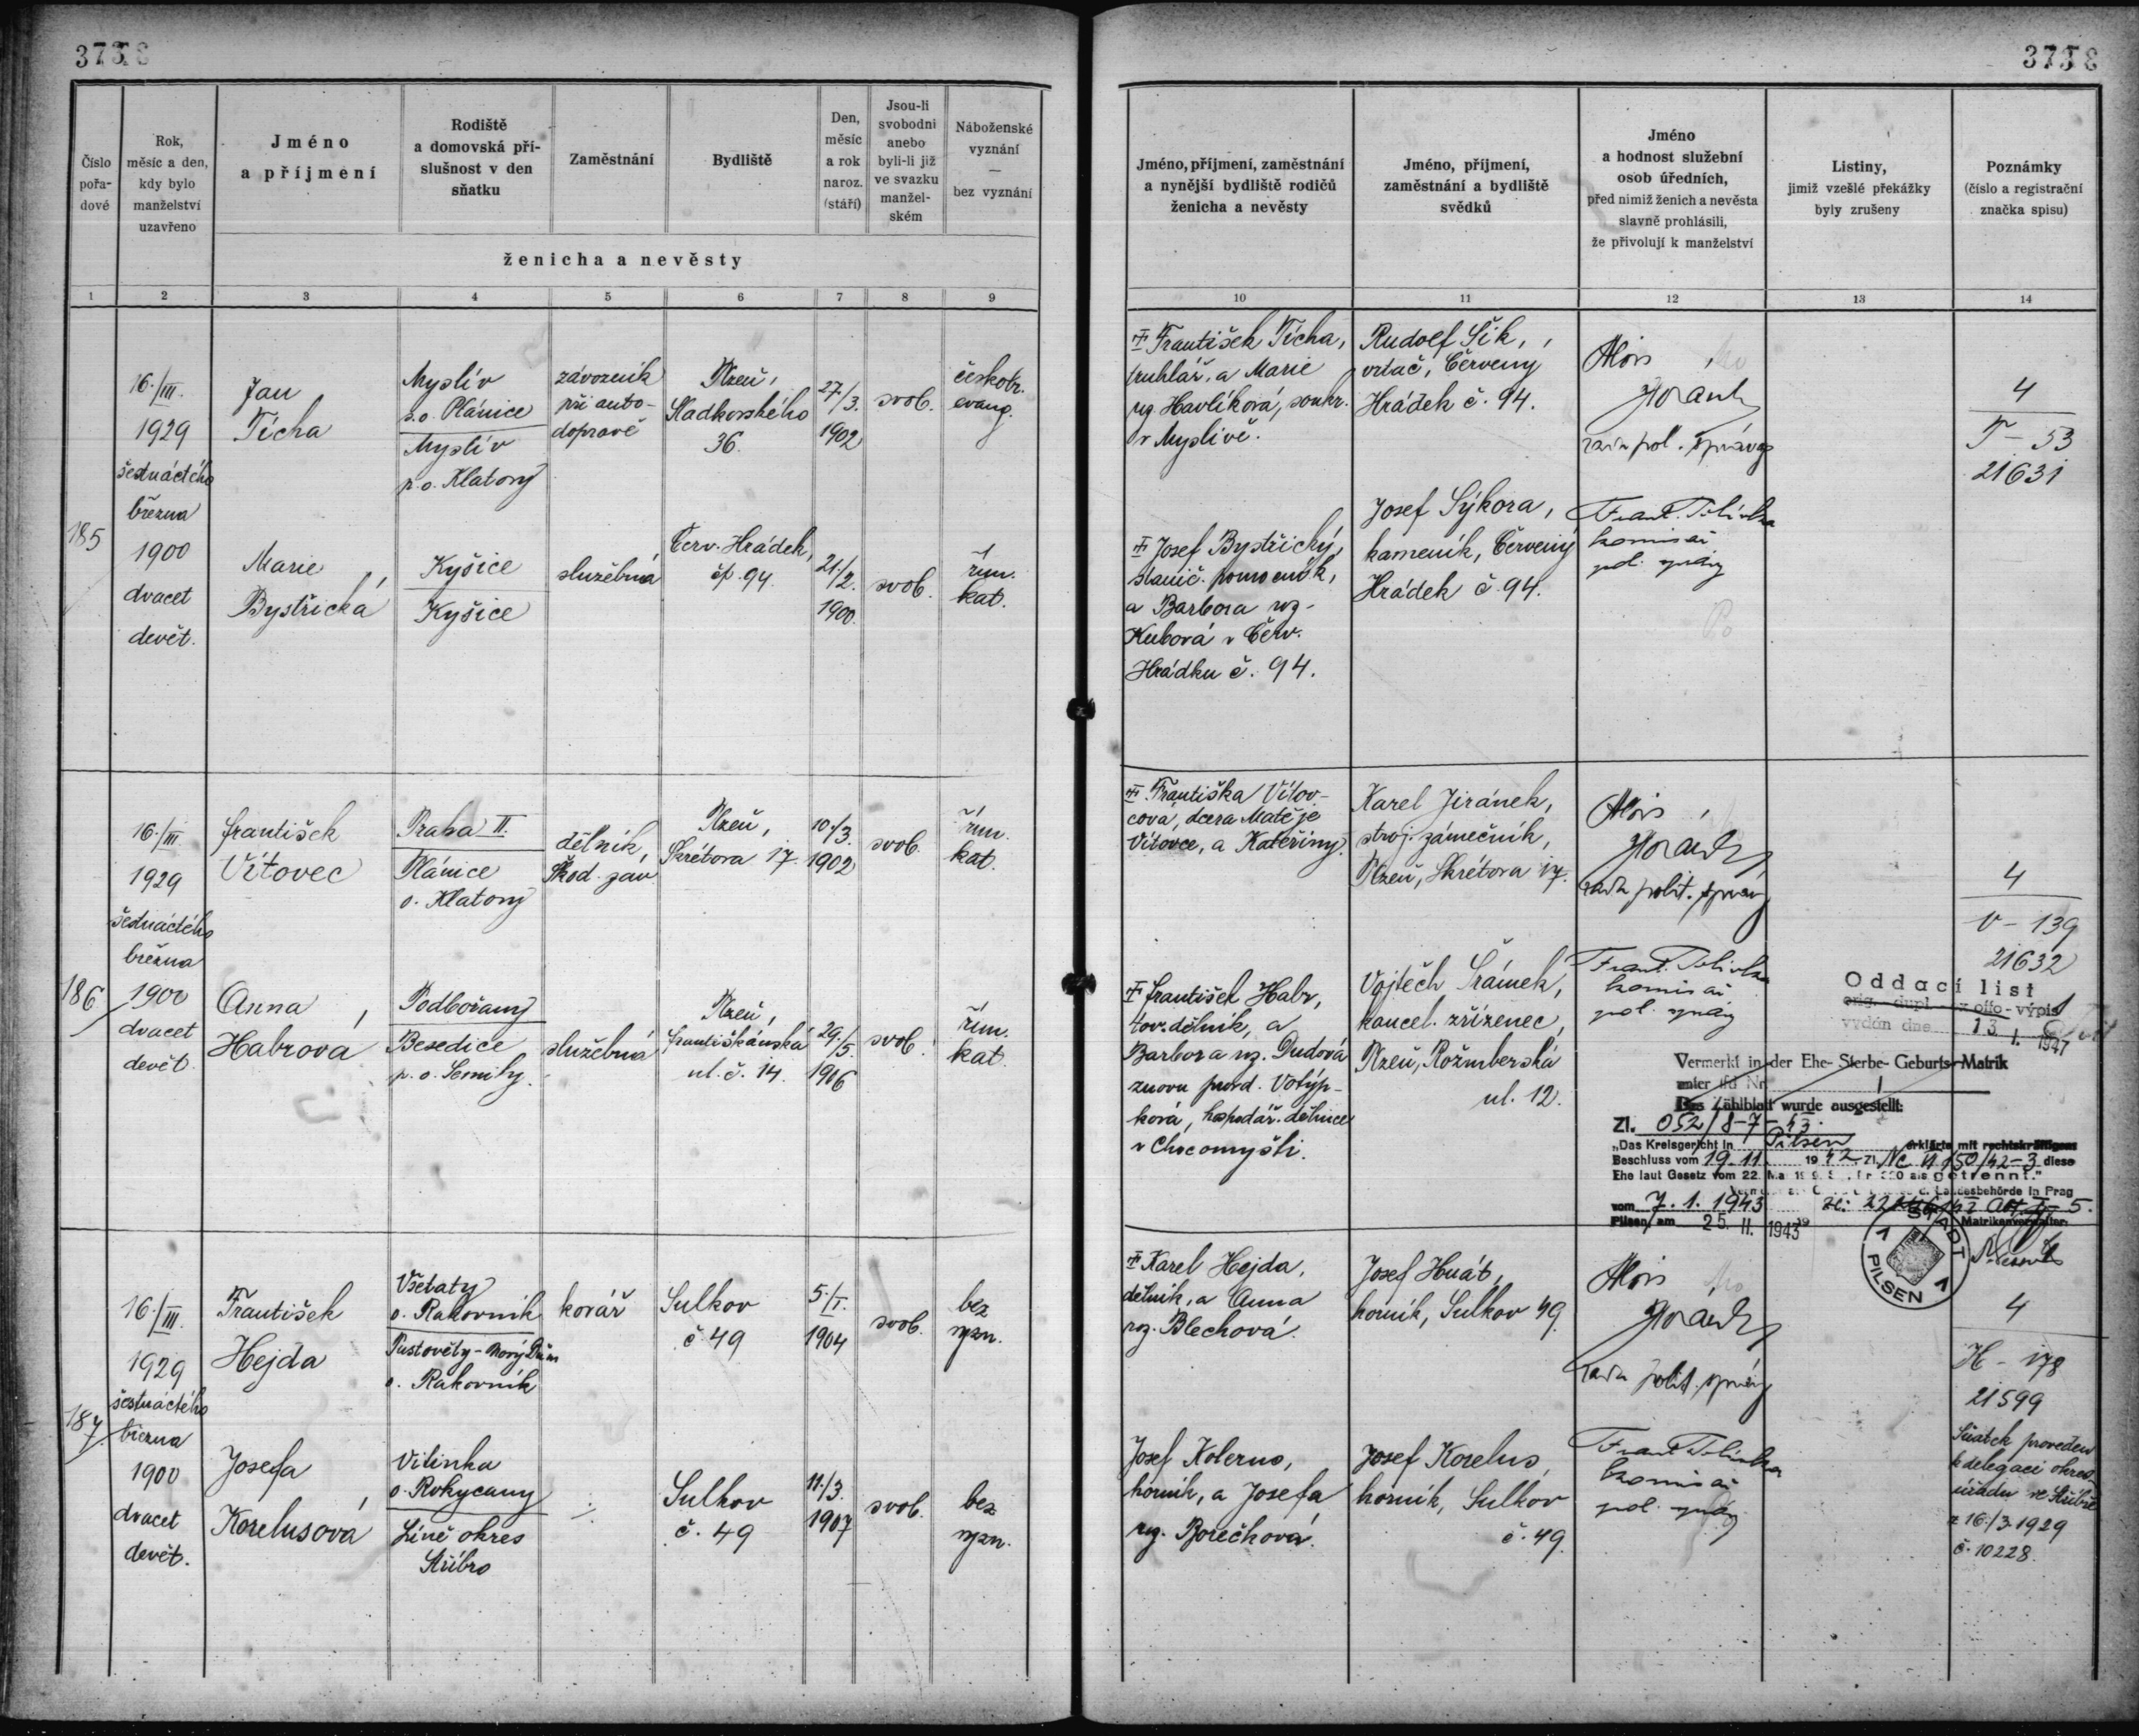 Číslo
pořa-
dové
Rok,
měsíc a den,
kdy bylo
manželství
uzavřeno
Jméno
a příjmení
Rodiště
a domovská pří-
slušnost v den
sňatku
Zaměstnání
Bydliště
Den,
měsíc
a rok
naroz.
(stáří)
Jsou-li
svobodni
anebo
byli-li již
ve svazku
manžel-
ském
Náboženské
vyznání
—
bez vyznání
ženicha a nevěsty
1 2 3 4 5 6 7 8 9
185
16./III.
1929
šestnáctého
března
1900
dvacet
devět.
Jan
Tícha
Myslív
s.o. Plánice
Myslív
p.o. Klatovy
závozník
při auto-
dopravě
Plzeň,
Sladkovského
36.
27./3.
1902
svob.
českobr.
evang.
Marie
Bystřická
Kyšice
Kyšice
služebná
Červ. Hrádek,
čp. 94.
21./2.
1900.
svob.
řím.
kat.
186
16./III.
1929
šestnáctého
března
1900
dvacet
devět.
František
Vítovec
Praha II.
Plánice
o. Klatovy
dělník,
Škod. záv.
Plzeň,
Skrétova 17.
10./3.
1902
svob.
řím.
kat.
Anna
Habrová
Podbořany
Besedice
p. o. Semily.
služebná
Plzeň,
Františkánská
ul. č. 14.
29./5.
1906
svob.
řím.
kat.
187.
16./III.
1929
šestnáctého
března
1900
dvacet
devět.
František
Hejda
Všetaty
o. Rakovník
Pustověty - Nový Dům
o. Rakovník
kovář
Sulkov
č. 49
5./I.
1904
svob.
bez
vyzn.
Josefa
Korelusová
Vitinka
o. Rokycany
Líně okres
Stříbro
Sulkov
č. 49
11./3.
1907
svob.
bez
vyzn.
Jméno, příjmení, zaměstnání
a nynější bydliště rodičů
ženicha a nevěsty
Jméno, příjmení,
zaměstnání a bydliště
svědků
Jméno
a hodnost služební
osob úředních,
před nimiž ženich a nevěsta
slavně prohlásili,
že přivolují k manželství
Listiny,
jimiž vzešlé překážky
byly zrušeny
Poznámky
(číslo a registrační
značka spisu)
10 11 12 13 14
František Tícha,
truhlář, a Marie
roz. Havlíková, soukr.
v Myslívě.
Rudolf Šik,
vrtač, Červený
Hrádek č. 94.
Alois
rada pol. správy
4
T - 53
21631
Josef Bystřický,
stanič. pomocník,
a Barbora roz.
Kubová v Červ.
Hrádku č. 94.
Josef Sýkora,
kameník, Červený
Hrádek č. 94.
Frant.
komisař
pol. správy
Františka Vítov-
cová, dcera Matěje
Vítovce, a Kateřiny.
Karel Jiránek,
stroj. zámečník,
Plzeň, Skrétova 17.
Alois
rada polit. správy
4
V - 139
21632
František Habr,
tov. dělník, a
Barbora roz. Dudová
znovu provd. Votýp-
ková, hospodář. dělnice
v Chocomyšli.
Vojtěch Šrámek,
kancel. zřízenec,
Plzeň, Rožmberská
ul. 12.
Frant.
komisař
pol. správy
Oddací list
orig. dupl. - z offo - výpis
vydán dne 13. 1. 1947
Vermerkt in der Ehe- Sterbe- Geburts-Matrik
unter lfd Nr.
Das Zählblatt wurde ausgestellt:
Zl. 052/8-7-43.
„Das Kreisgericht in Pilsen erklärte mit rechtskräftigem
Beschluss vom 19. 11. 1942 Zl. Nc II 150/42-3 diese
Ehe laut Gesetz vom 22. Mai als getrennt."
Landesbehörde in Prag
vom 7. 1. 1943
Pilsen, am 25. II. 1943
Matrikenverwalter:
STADT
PILSEN
Karel Hejda,
dělník, a Anna
roz. Blechová.
Josef Hnát,
horník, Sulkov 49.
Alois
rada polit. správy
4
H - 178
21599
Josef Kolerus,
horník, a Josefa
roz. Borečková.
Josef Korelus,
horník, Sulkov
č. 49.
Frant.
komisař
pol. správy
Sňatek proveden
k delegaci okres.
úřadu ve Stříbře
z 16./3. 1929
č. 10228.